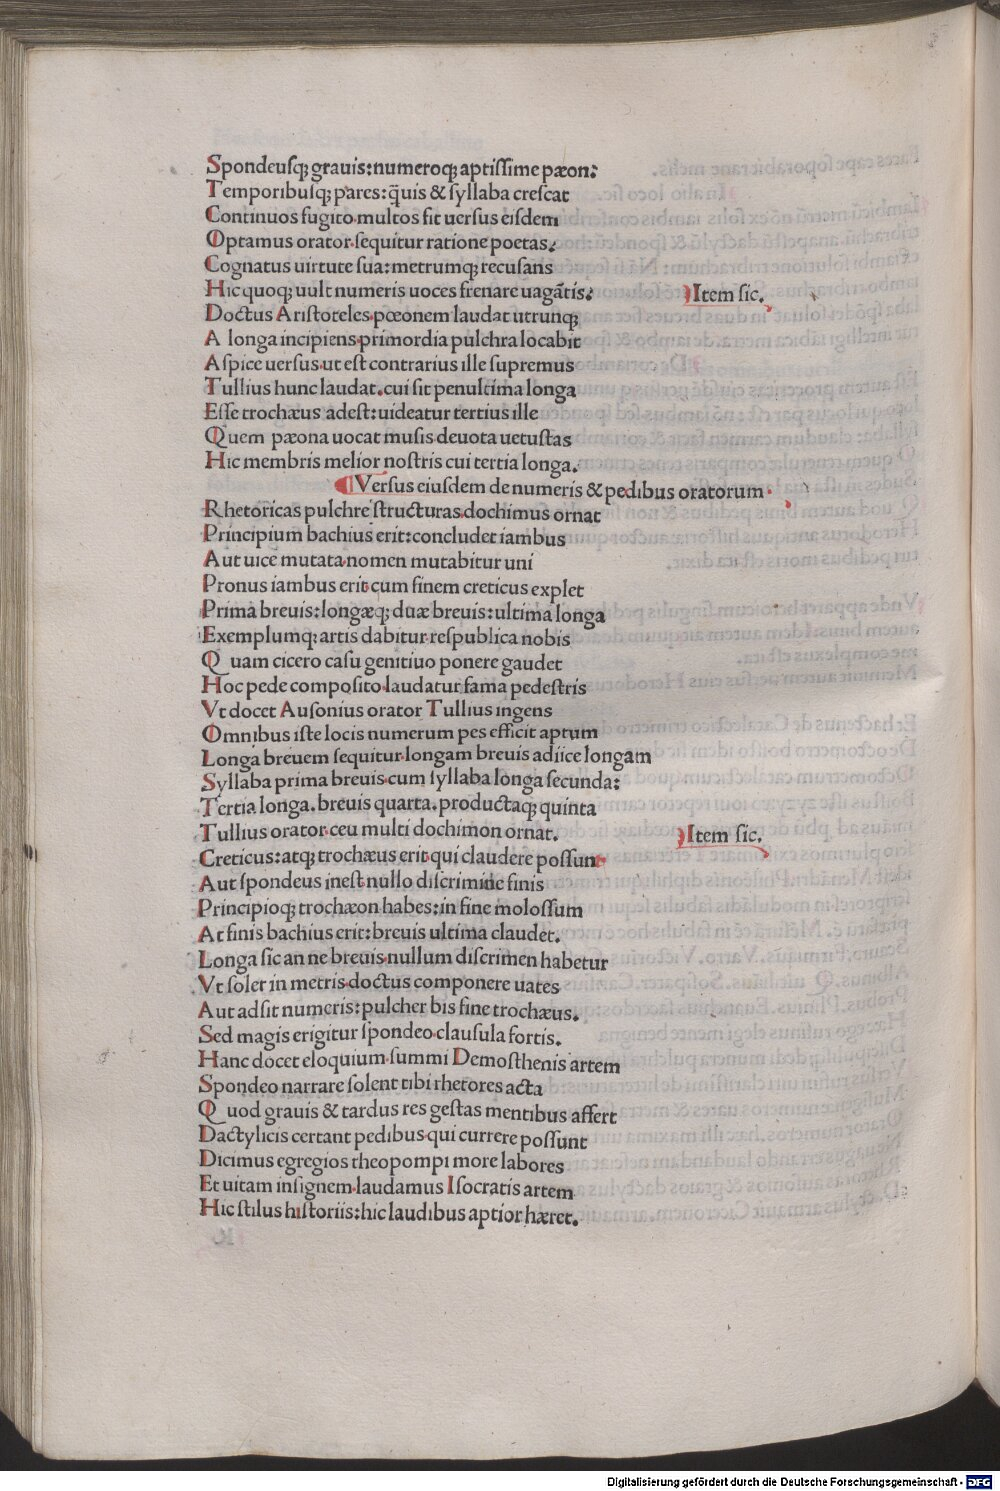 Spondeusq; grauis: numeroq; aptissime pæon:
Temporibusq; pares: q̃uis & syllaba crescat
Continuos fugito multos sit uersus eisdem
Optamus orator sequitur ratione poetas:
Cognatus uirtute sua: metrumq; recusans
Hic quoq; uult numeris uoces frenare uagãtis: Item sic.
Doctus Aristoteles pœonem laudat utrunq;
A longa incipiens primordia pulchra locabit
Aspice uersus ut est contrarius ille supremus
Tullius hunc laudat. cui sit penultima longa
Esse trochæus adest: uideatur tertius ille
Quem pæona uocat musis deuota uetustas
Hic membris melior nostris cui tertia longa.
Versus eiusdem de numeris & pedibus oratorum.
Rhetoricas pulchre structuras dochimus ornat
Principium bachius erit: concludet iambus
Aut uice mutata nomen mutabitur uni
Pronus iambus erit cum finem creticus explet
Prima breuis: longæq; duæ breuis: ultima longa
Exemplumq; artis dabitur respublica nobis
Quam cicero casu genitiuo ponere gaudet
Hoc pede composito laudatur fama pedestris
Vt docet Ausonius orator Tullius ingens
Omnibus iste locis numerum pes efficit aptum
Longa breuem sequitur longam breuis adiice longam
Syllaba prima breuis cum syllaba longa secunda:
Tertia longa. breuis quarta. productaq; quinta
Tullius orator ceu multi dochimon ornat. Item sic.
Creticus: atq; trochæus erit qui claudere possunt
Aut spondeus inest nullo discrimine finis
Principioq; trochæon habes: in fine molossum
At finis bachius erit: breuis ultima claudet.
Longa sic an ne breuis nullum discrimen habetur
Vt solet in metris doctus componere uates
Aut adsit numeris: pulcher bis fine trochæus.
Sed magis erigitur spondeo clausula fortis.
Hanc docet eloquium summi Demosthenis artem
Spondeo narrare solent tibi rhetores acta
Quod grauis & tardus res gestas mentibus affert
Dactylicis certant pedibus qui currere possunt
Dicimus egregios theopompi more labores
Et uitam insignem laudamus Isocratis artem
Hic stilus historiis: hic laudibus aptior hæret.
Digitalisierung gefördert durch die Deutsche Forschungsgemeinschaft - DFG